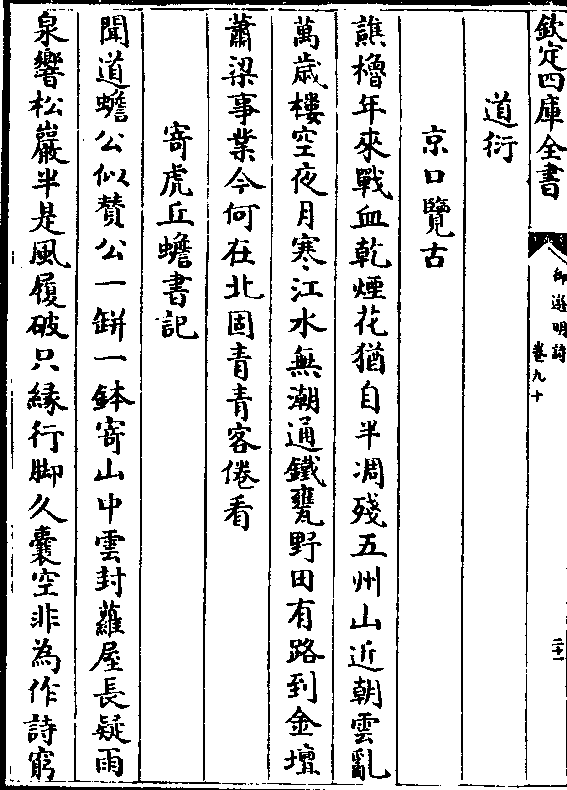 欽定四庫全書
御選明詩
卷九十
二十一
道衍
京口覽古
譙櫓年來戰血乾煙花猶自半凋殘五州山近朝雲亂
萬歲樓空夜月寒江水無潮通鐵甕野田有路到金壇
蕭梁事業今何在北固青青客倦看
寄虎丘蟾書記
聞道蟾公似贊公一缾一鉢寄山中雲封蘿屋長疑雨
泉響松巖半是風履破只緣行脚久囊空非為作詩窮